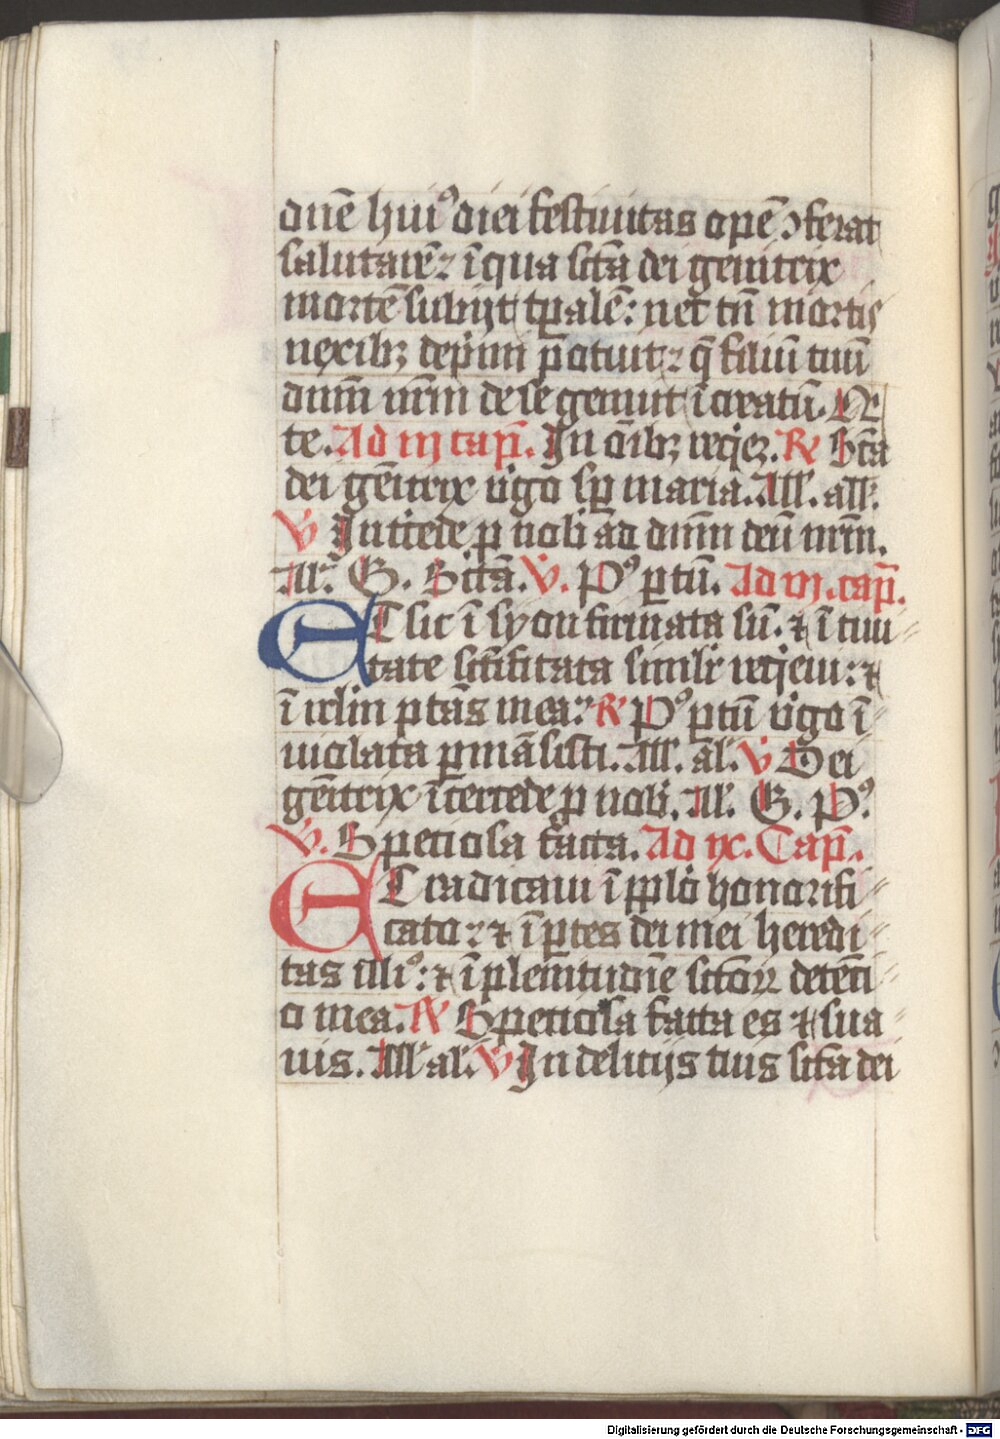 dnē huiꝰ diei festiuitas opē ↄferat
salutarē ⁊ ī qua sctā dei genitrix
mortē subijt tꝑalē: nec tn̄ mortis
nexibꝫ dep̄mi potuit ⁊ q̄ filiū tuū
dnm̄ nr̄m de se genuit īcarnatū.
te. Ad iij cap̄. In oībꝫ reqiez. R̄ Scā
dei gēitrix v̓go sp̄ maria. All. all.
V̓ Int̓cede ꝓ nobis ad dnm̄ deū nr̄m.
All. G. Sctā. V̓. Pꝰ ꝑtū. Ad vj. cap̄.
ET sic ī syon firmata sū. ⁊ ī ciui
tate sctīficata similr̄ reqieui: ⁊
ī irlm̄ ptās mea. R̄ Pꝰ ꝑtū v̓go ī
uiolata ꝑmāsisti. All. al. V̓ Dei
gēitrix īt̓cede ꝓ nobis. All. G. Pꝰ.
V̓. Speciosa facta. Ad ix. Cap̄.
ET radicaui ī pplō honorifi
cato: ⁊ ī ꝑtes dei mei heredi
tas illiꝰ: ⁊ ī plenitudīe sctōꝝ detēti
o mea. R̄ Speciosa facta es ⁊ sua
uis. All al. V̓ In delicijs tuis scā dei
Digitalisierung gefördert durch die Deutsche Forschungsgemeinschaft - DFG